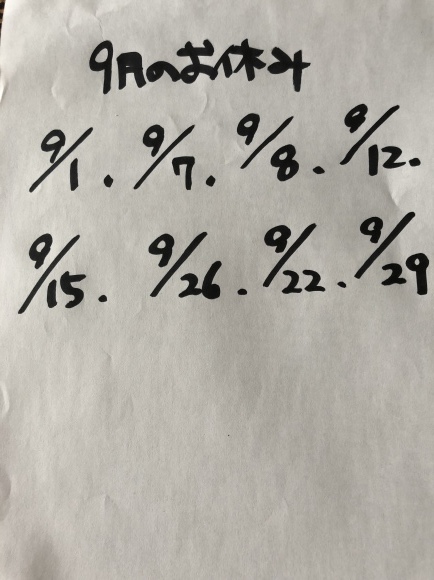 9月のお休み
9/1. 9/7. 9/8. 9/12.
9/15. 9/26. 9/22. 9/29